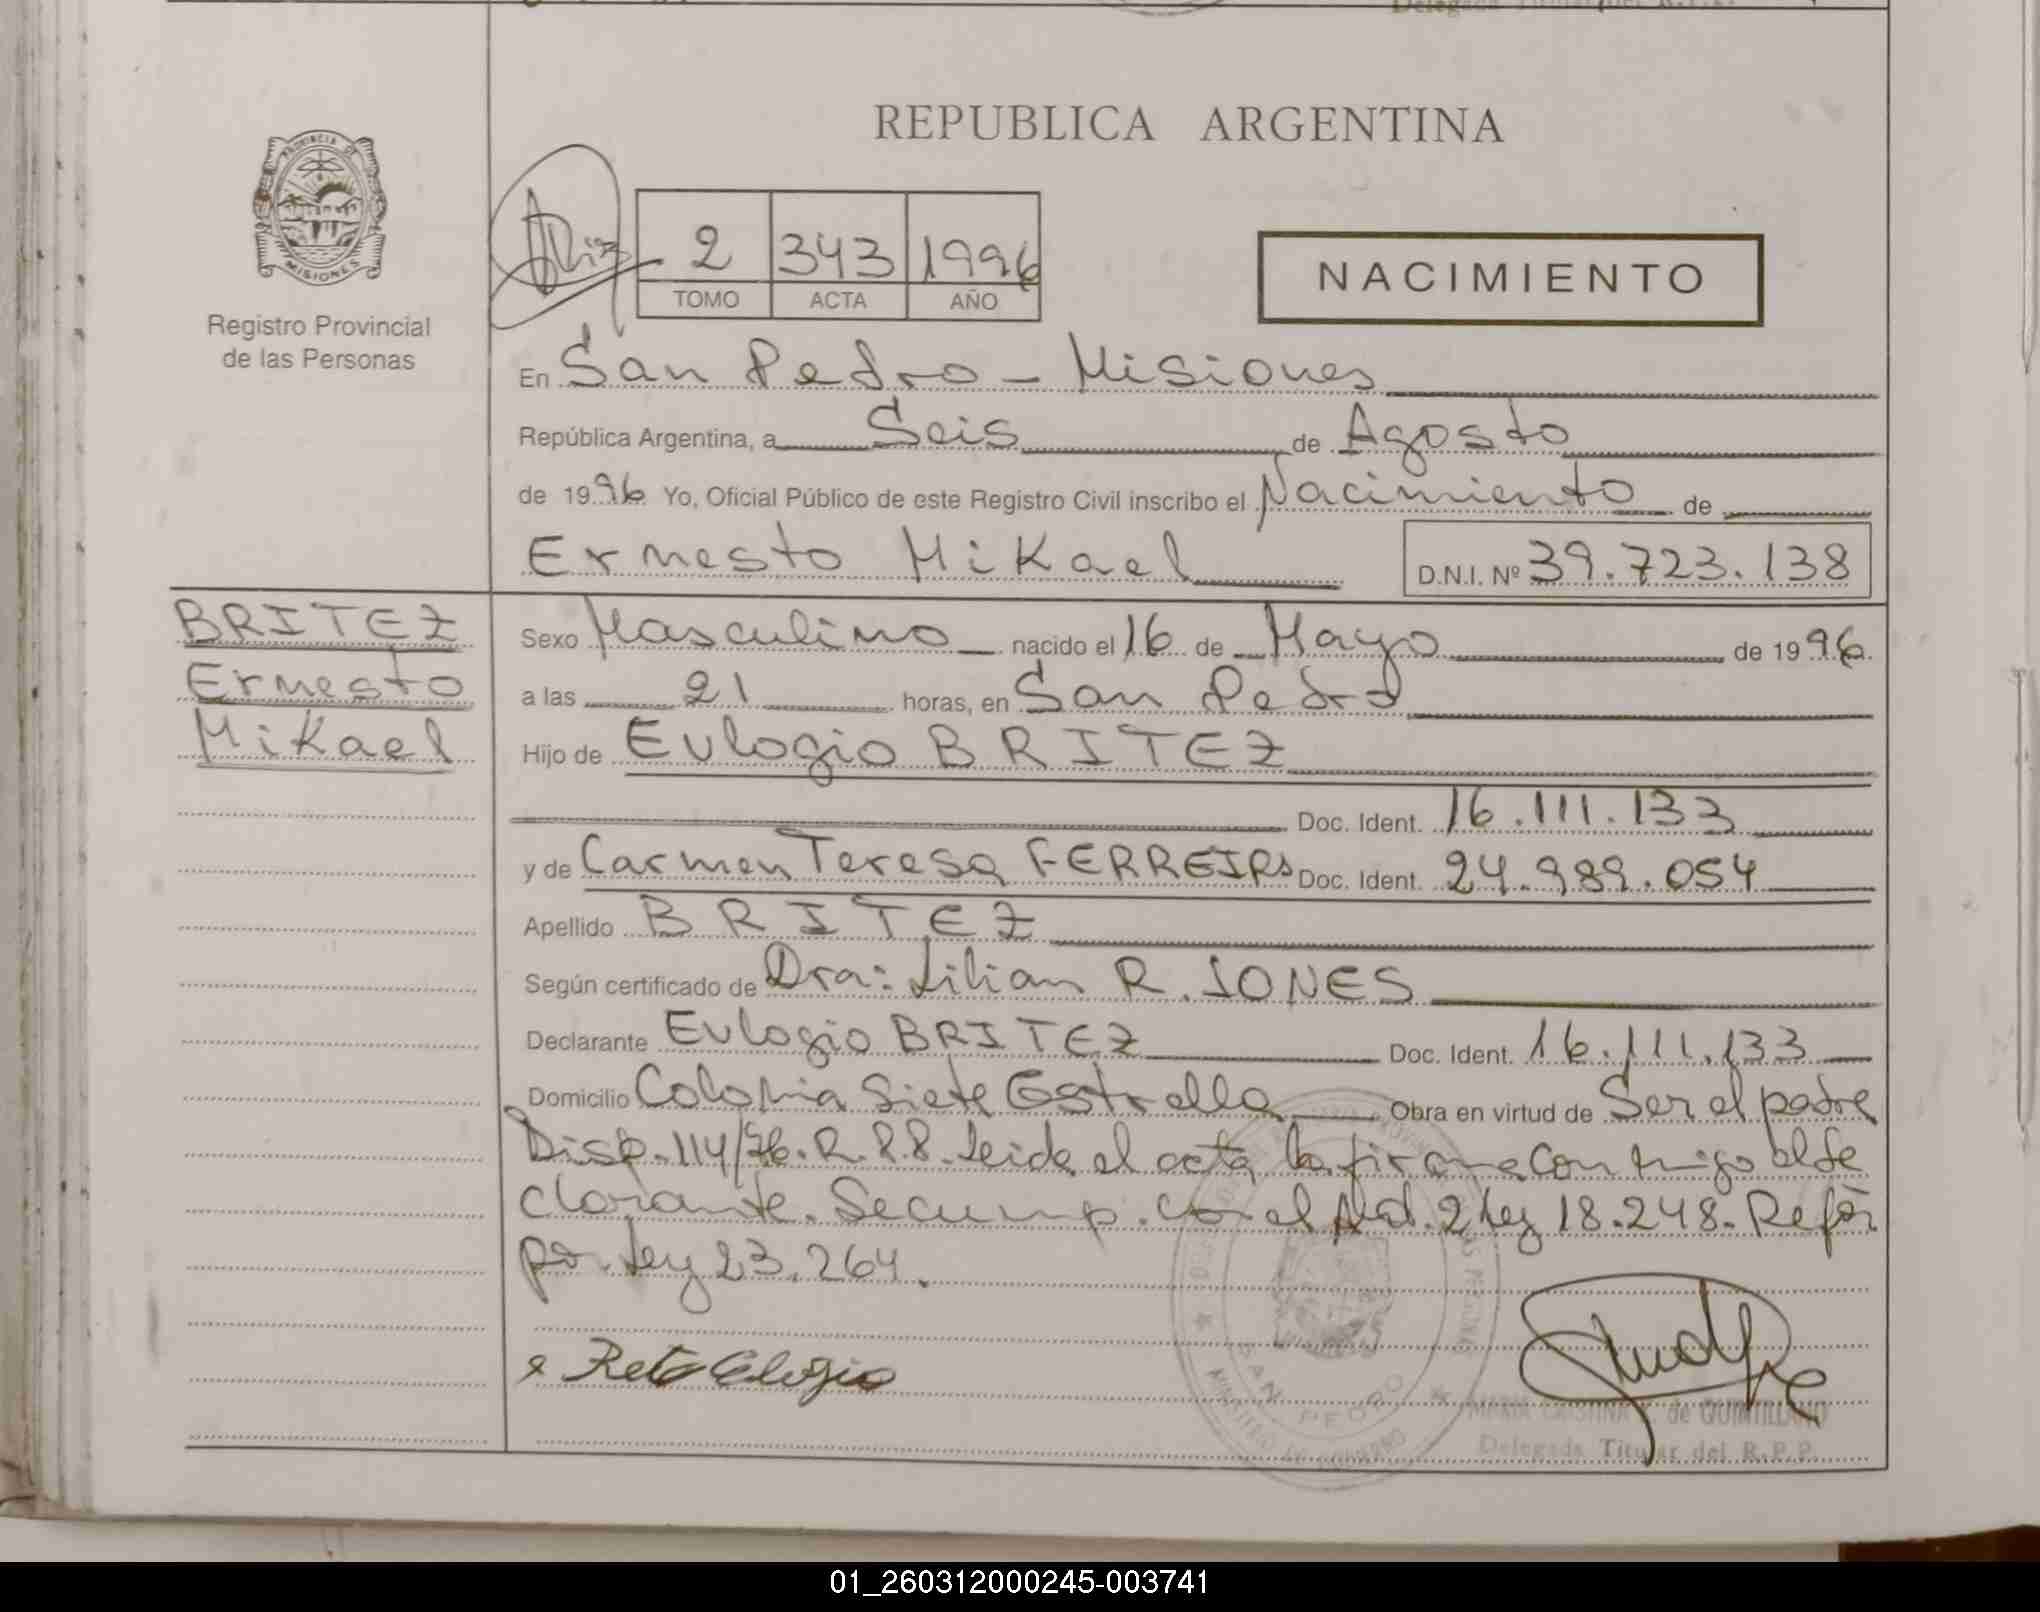 REPUBLICA ARGENTINA
PROVINCIA DE
MISIONES
Registro Provincial
de las Personas
2 343 1996
TOMO ACTA AÑO
NACIMIENTO
En San Pedro - Misiones
República Argentina, a Seis de Agosto
de 1996 Yo, Oficial Público de este Registro Civil inscribo el Nacimiento de
Ernesto Mikael D.N.I. Nº 39.723.138
BRITEZ
Ernesto
Mikael
Sexo Masculino nacido el 16 de Mayo de 1996
a las 21 horas, en San Pedro
Hijo de Eulogio BRITEZ
Doc. Ident. 16.111.133
y de Carmen Teresa FERREIRA Doc. Ident. 24.989.054
Apellido BRITEZ
Según certificado de Dra: Lilian R. JONES
Declarante Eulogio BRITEZ Doc. Ident. 16.111.133
Domicilio Colonia Siete Estrella Obra en virtud de Ser el padre
Disp. 114/76. R.P.P. Leida el acta la firma conmigo el de
clarante. Se cump. con el Art. 2 Ley 18.248. Refor
por Ley 23.264.
SAN PEDRO
MINISTERIO DE GOBIERNO
MARIA CRISTINA de QUINTILLANO
Delegada Titular del R.P.P.
01_260312000245-003741